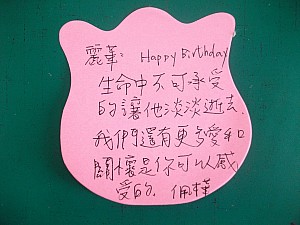 麗華: Happy Birthday
生命中不可承受
的讓他淡淡逝去.
我們還有更多愛和
關懷是你可以感
受的. 佩樺